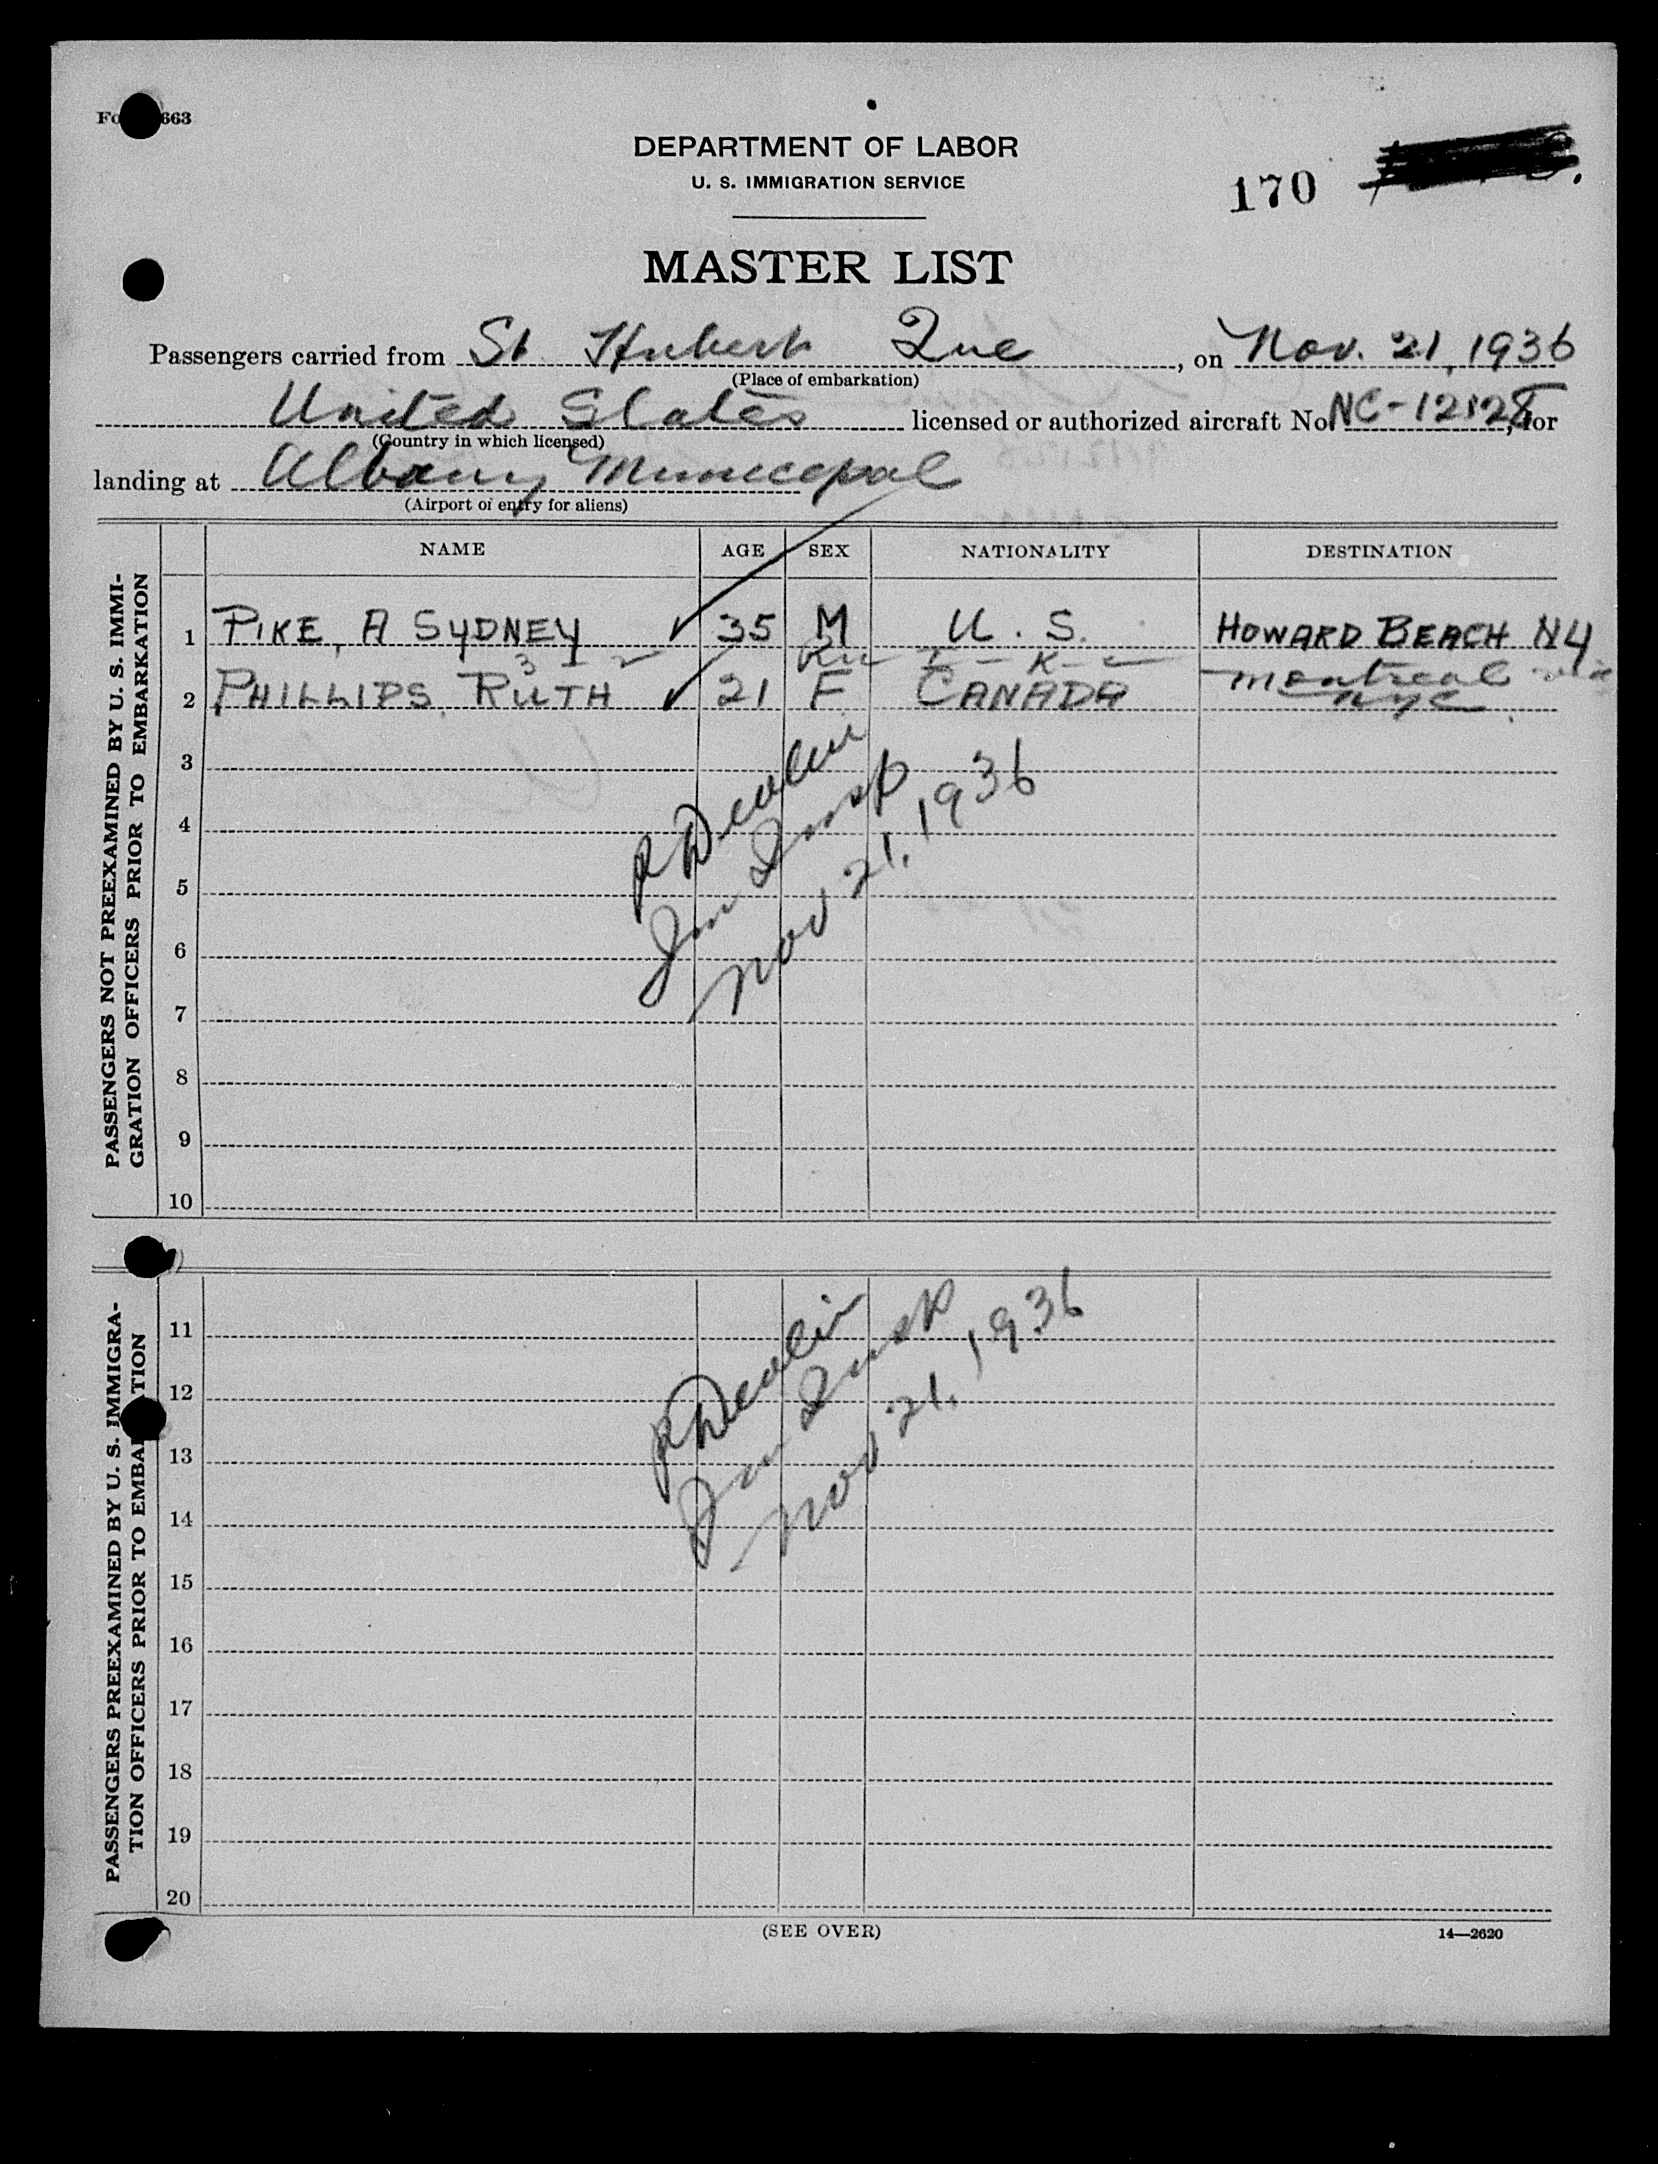 663
DEPARTMENT OF LABOR
U. S. IMMIGRATION SERVICE
170
MASTER LIST
Passengers carried from St Hubert Que, on Nov. 21, 1936
(Place of embarkation)
United States licensed or authorized aircraft No. NC-12128, for
(Country in which licensed)
landing at Albany Municipal
(Airport of entry for aliens)
NAME AGE SEX NATIONALITY DESTINATION
PASSENGERS NOT PREEXAMINED BY U. S. IMMI-
GRATION OFFICERS PRIOR TO EMBARKATION
1 PIKE, A SYDNEY ✓ 35 M U. S. HOWARD BEACH NY
3 - 1 - 2
2 PHILLIPS, RUTH ✓ 21 F CANADA Montreal via
NYC
3
4
5
6
7
8
9
10
R Devlin
Im Insp
Nov 21, 1936
PASSENGERS PREEXAMINED BY U. S. IMMIGRA-
TION OFFICERS PRIOR TO TION
11
12
13
14
15
16
17
18
19
20
R Devlin
Im Insp
Nov 21, 1936
(SEE OVER)
14—2620